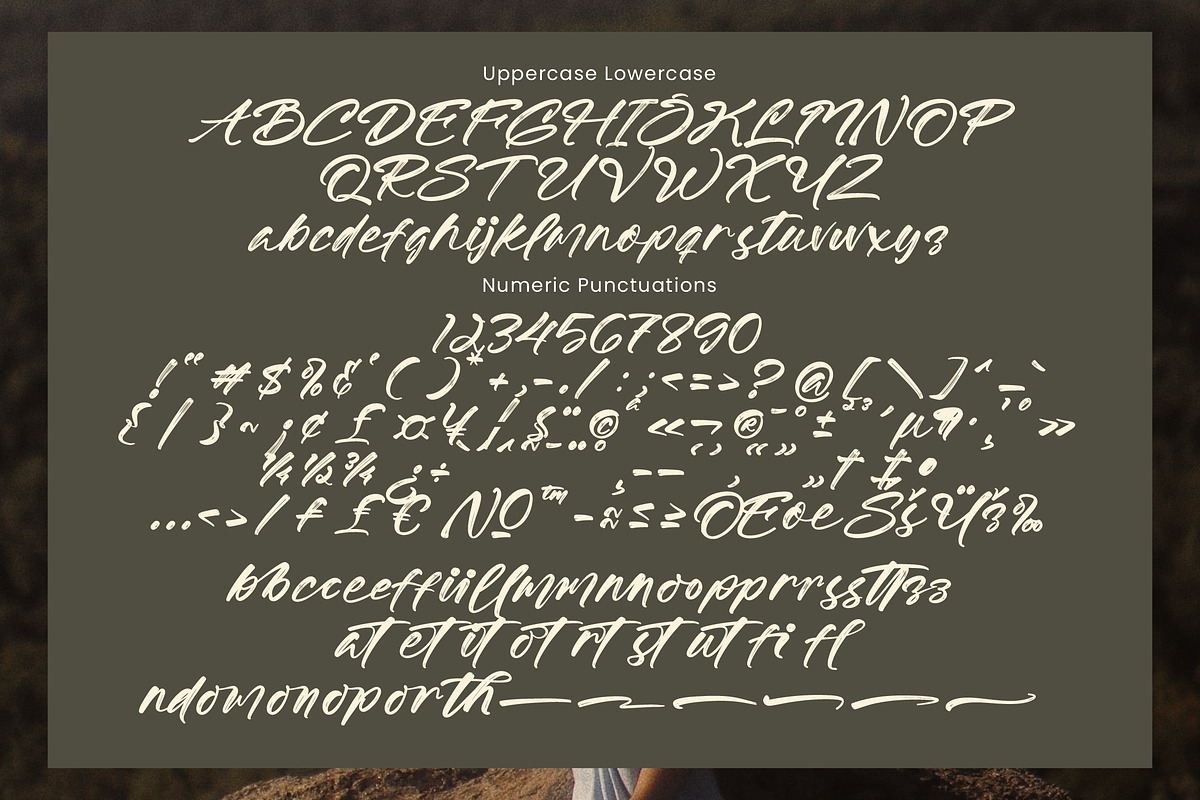 Uppercase Lowercase
ABCDEFGHIJKLMNOP
QRSTUVWXYZ
abcdefghijklmnopqrstuvwxyz
Numeric Punctuations
1234567890
!"#$%&'()*+,-./:;<=>?@[\]^_`
{|}~¡¢£¤¥¦§¨©ª«¬®¯°±²³´µ¶·¸¹º»
¼½¾¿÷
...<>/ƒ£€№™-≈≤≥ŒœŠšŸž‰
bbcceeffiillmmnnooopprrssttzz
at et it ot rt st ut fi fl
ndomonoporth